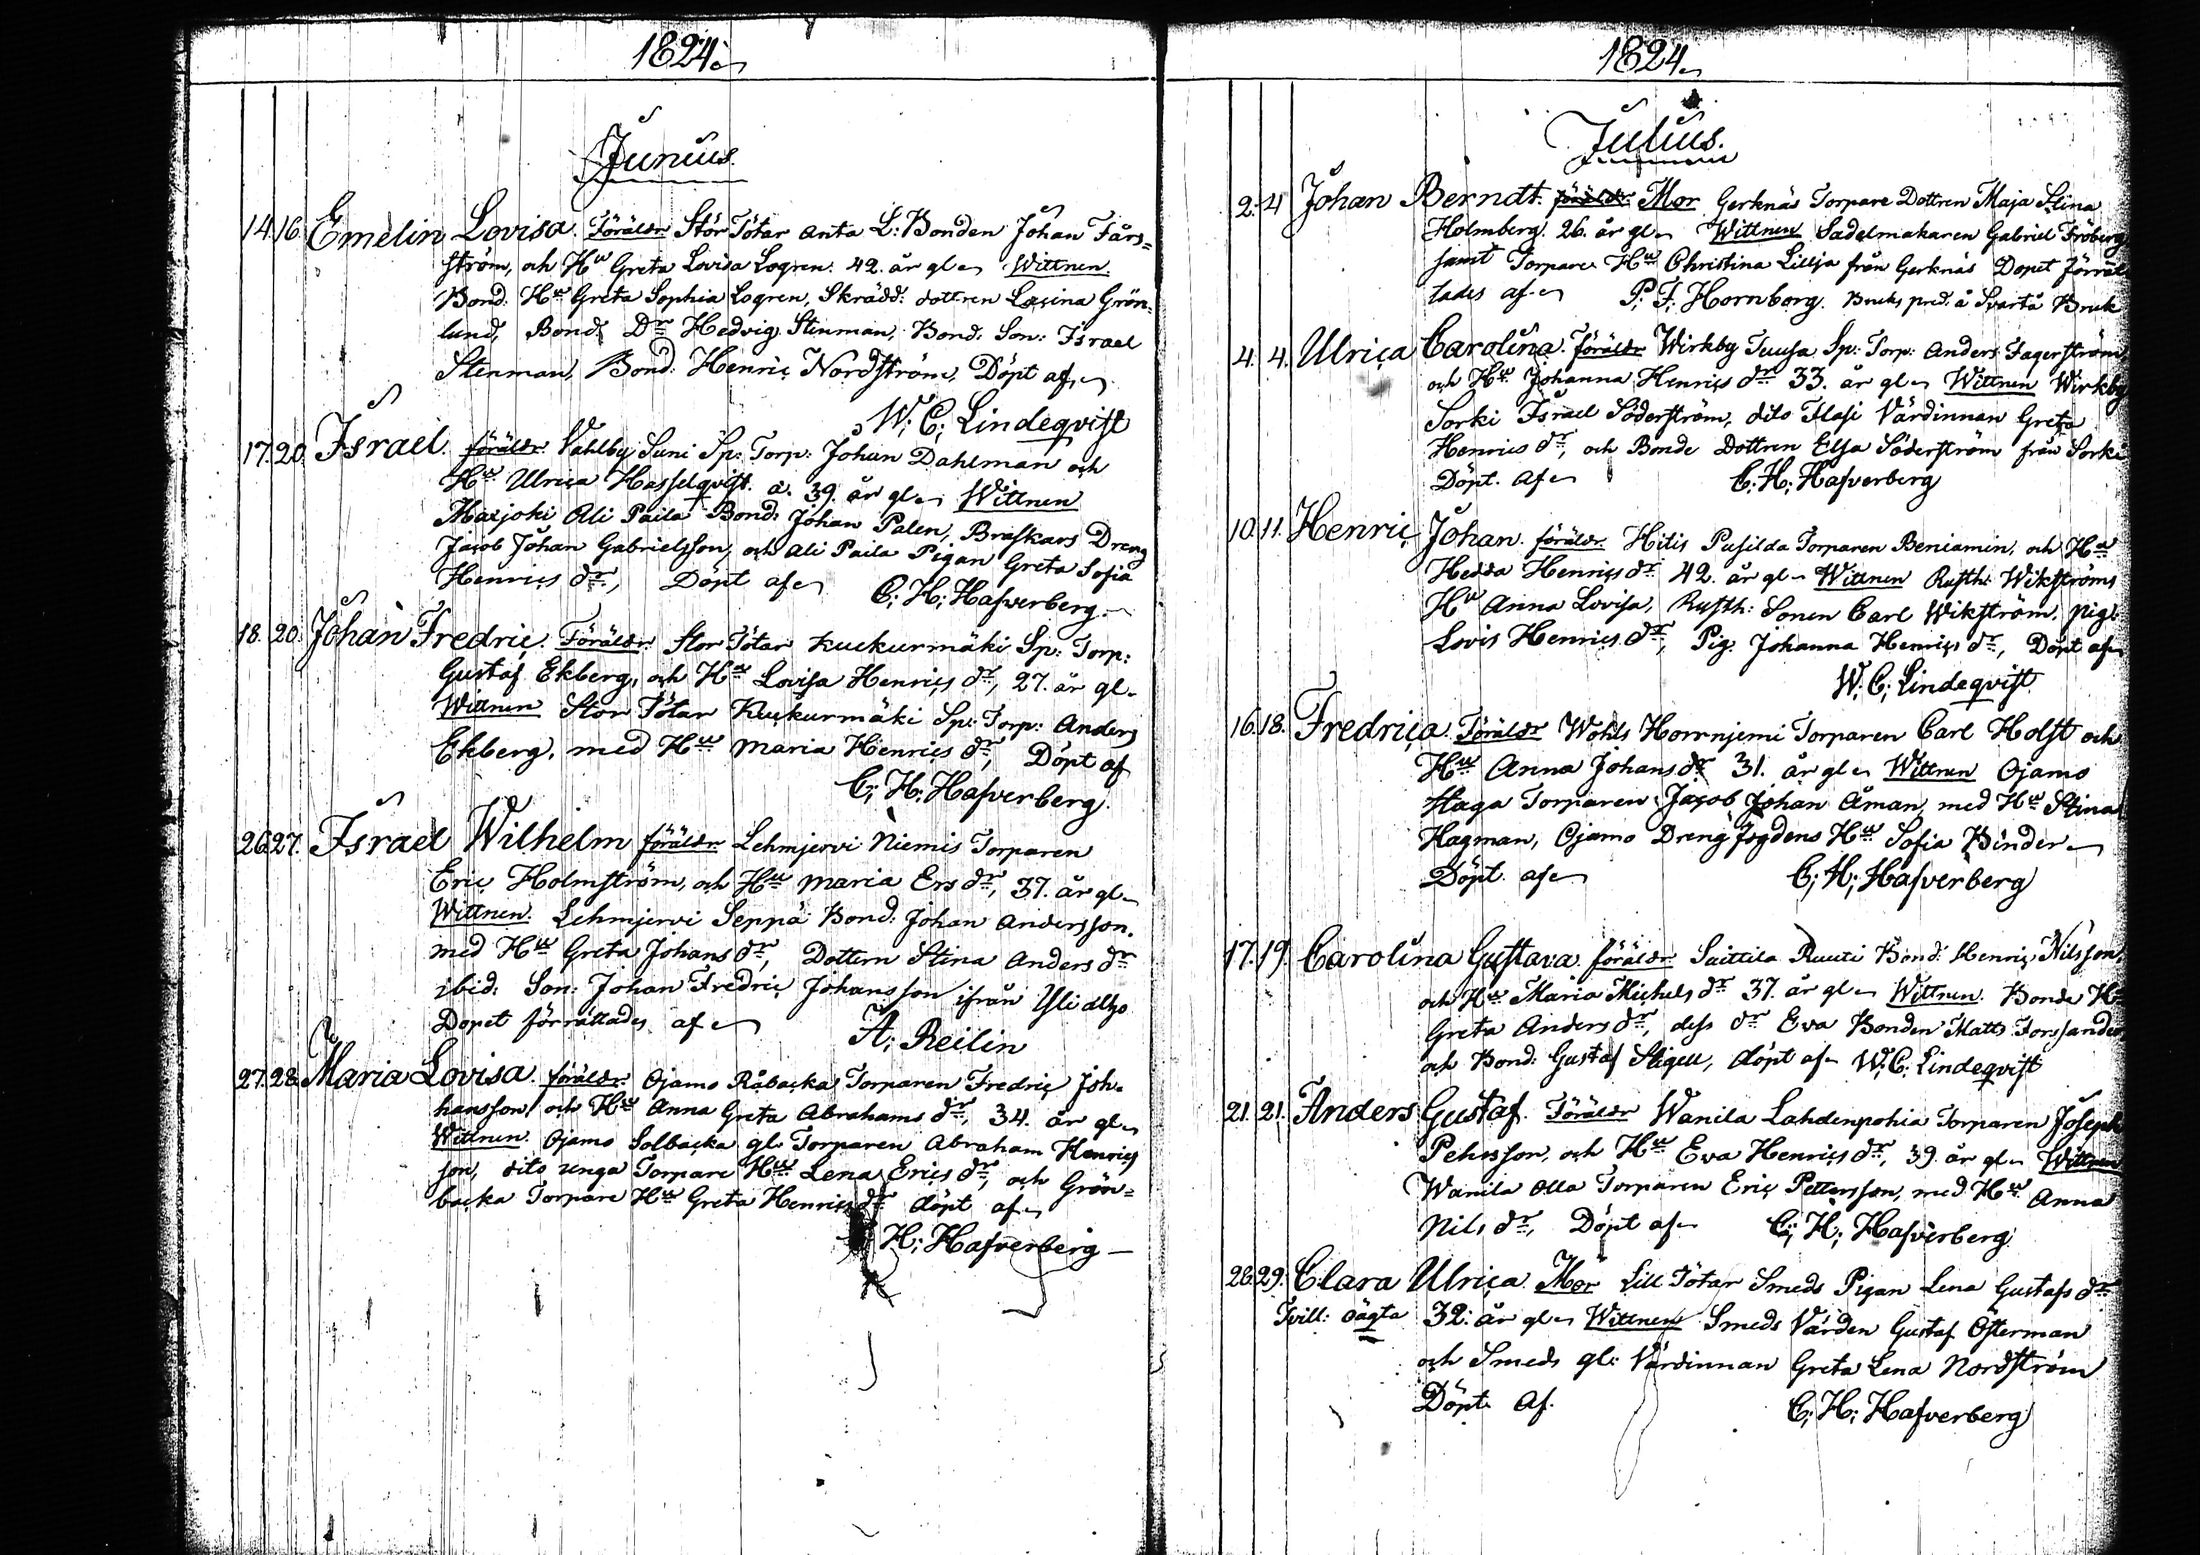 1824.
Junius.
14. 16. Emelin Lovisa. Föräldr. Stór Tötar Anta L: Bonden Johan Fårs=
ström, och Hu Greta Lovisa Logren. 42. år gl. Wittnen.
Bond. Hu Greta Sophia Logren, Skrädd: dottren Lovina Grön-
lund, Bond. Dr Hedvig Stenman, Bond. Son: Israel
Stenman, Bond. Henric Nordström, Döpt af
W. C. Lindeqvist
17. 20. Israel. föräldr. Vahlby Suni Sp: Torp: Johan Dahlman och
Hu Ulrica Hasselqvist. a. 39. år gl. Wittnen
Marjoki Ali Paila Bond: Johan Palen, Braskars Dreng
Jacob Johan Gabrielsson, och Ali Paila Pigan Greta Sofia
Henrics dr, Döpt af C; H; Hafverberg.
18. 20. Johan Fredric. Föräldr. Stor Tötar Kuckurmäki Sp: Torp:
Gustaf Ekberg, och Hu Lovisa Henrics dr, 27. år gl.
Wittnen Stor Tötar Kuckurmäki Sp: Torp: Anders
Ekberg, med Hu Maria Henrics dr, Döpt af
C; H; Hafverberg.
26. 27. Israel Wilhelm föräldr. Lehmjervi Niemis Torparen
Eric Holmström, och Hu Maria Ers dr, 37. år gl.
Wittnen. Lehmjervi Seppä Bond: Johan Andersson.
med Hu Greta Johans dr, Dottern Stina Anders dr
ibid: Son: Johan Fredric Johansson ifrån
Dopet förrättades af A. Reilin
27. 28. Maria Lovisa. föräldr. Ojamo Råbacka Torparen Fredric Joh-
hansson, och Hu Anna Greta Abrahams dr, 34. år gl.
Wittnen. Ojamo Solbacka gl. Torparen Abraham Henrics
son, dito unga Torpare Hu Lena Erics dr, och Grön=
backa Torpare Hu Greta Henrics dr döpt af
H; Hafverberg
1824.
Julius.
2. 4 Johan Berndt. föräldr. Mor Gerknäs Torpare Dottren Maja Stina
Holmberg. 26. år gl. Wittnen Sadelmakaren Gabriel Fröberg
samt Torpare Hu Christina Lillja från Gerknäs Dopet förrät
tades af P. F. Hornborg. Bruks pred. å Svartå Bruk
4. 4. Ulrica Carolina. föräldr Wirkby Tuusa Sp: Torp: Anders Fagerström,
och Hu Johanna Henrics dr 33. år gl. Wittnen Wirkby
Sorki Israel Söderström, dito Flasi Värdinnan Greta
Henrics dr, och Bonde Dottren Elsa Söderström från Sorki
Döpt. af C. H. Hafverberg
10. 11. Henric Johan. föräldr. Hitis Pusilda Torparen Beniamin, och Hu
Hedda Henrics dr 42. år gl. Wittnen Rusth: Wikströms
Hu Anna Lovisa, Rusth: Sonen Carl Wikström, pig:
Lovis Henrics dr, Pig. Johanna Henrics dr, Döpt af
W. C. Lindeqvist.
16. 18. Fredrica. Föräldr Wohls Horrnjemi Torparen Carl Holst och
Hu Anna Johans dr 31. år gl. Wittnen Ojamo
Haga Torparen Jacob Johan Åman, med Hu Stina
Hagman, Ojamo Dreng fogdens Hu Sofia Binder
Döpt. af C; H; Hafverberg
17. 19. Carolina Gustava. föräldr Suittila Ruuti Bond: Henric Nilsson,
och Hu Maria Michels dr 37. år gl. Wittnen. Bonde Hu
Greta Anders dr, dess dr Eva Bonden Matts Forssander
och Bond: Gustaf Stigell, döpt af W. C. Lindeqvist
21. 21. Anders Gustaf. Föräldr Wanila Lahdenpohia Torparen Joseph
Pehrsson, och Hu Eva Henrics dr, 39. år gl. Wittnen
Wanila Olla Torparen Eric Pettersson, med Hu Anna
Nils dr, Döpt af C; H; Hafverberg.
28. 29. Clara Ulrica. Mor Lill Tötar Smeds Pigan Lena Gustafs dr
Tvill: oägta 32. år gl. Wittnen Smeds Värden Gustaf Österman
och Smeds gl: Värdinnan Greta Lena Nordström
Döpt. Af. C; H; Hafverberg